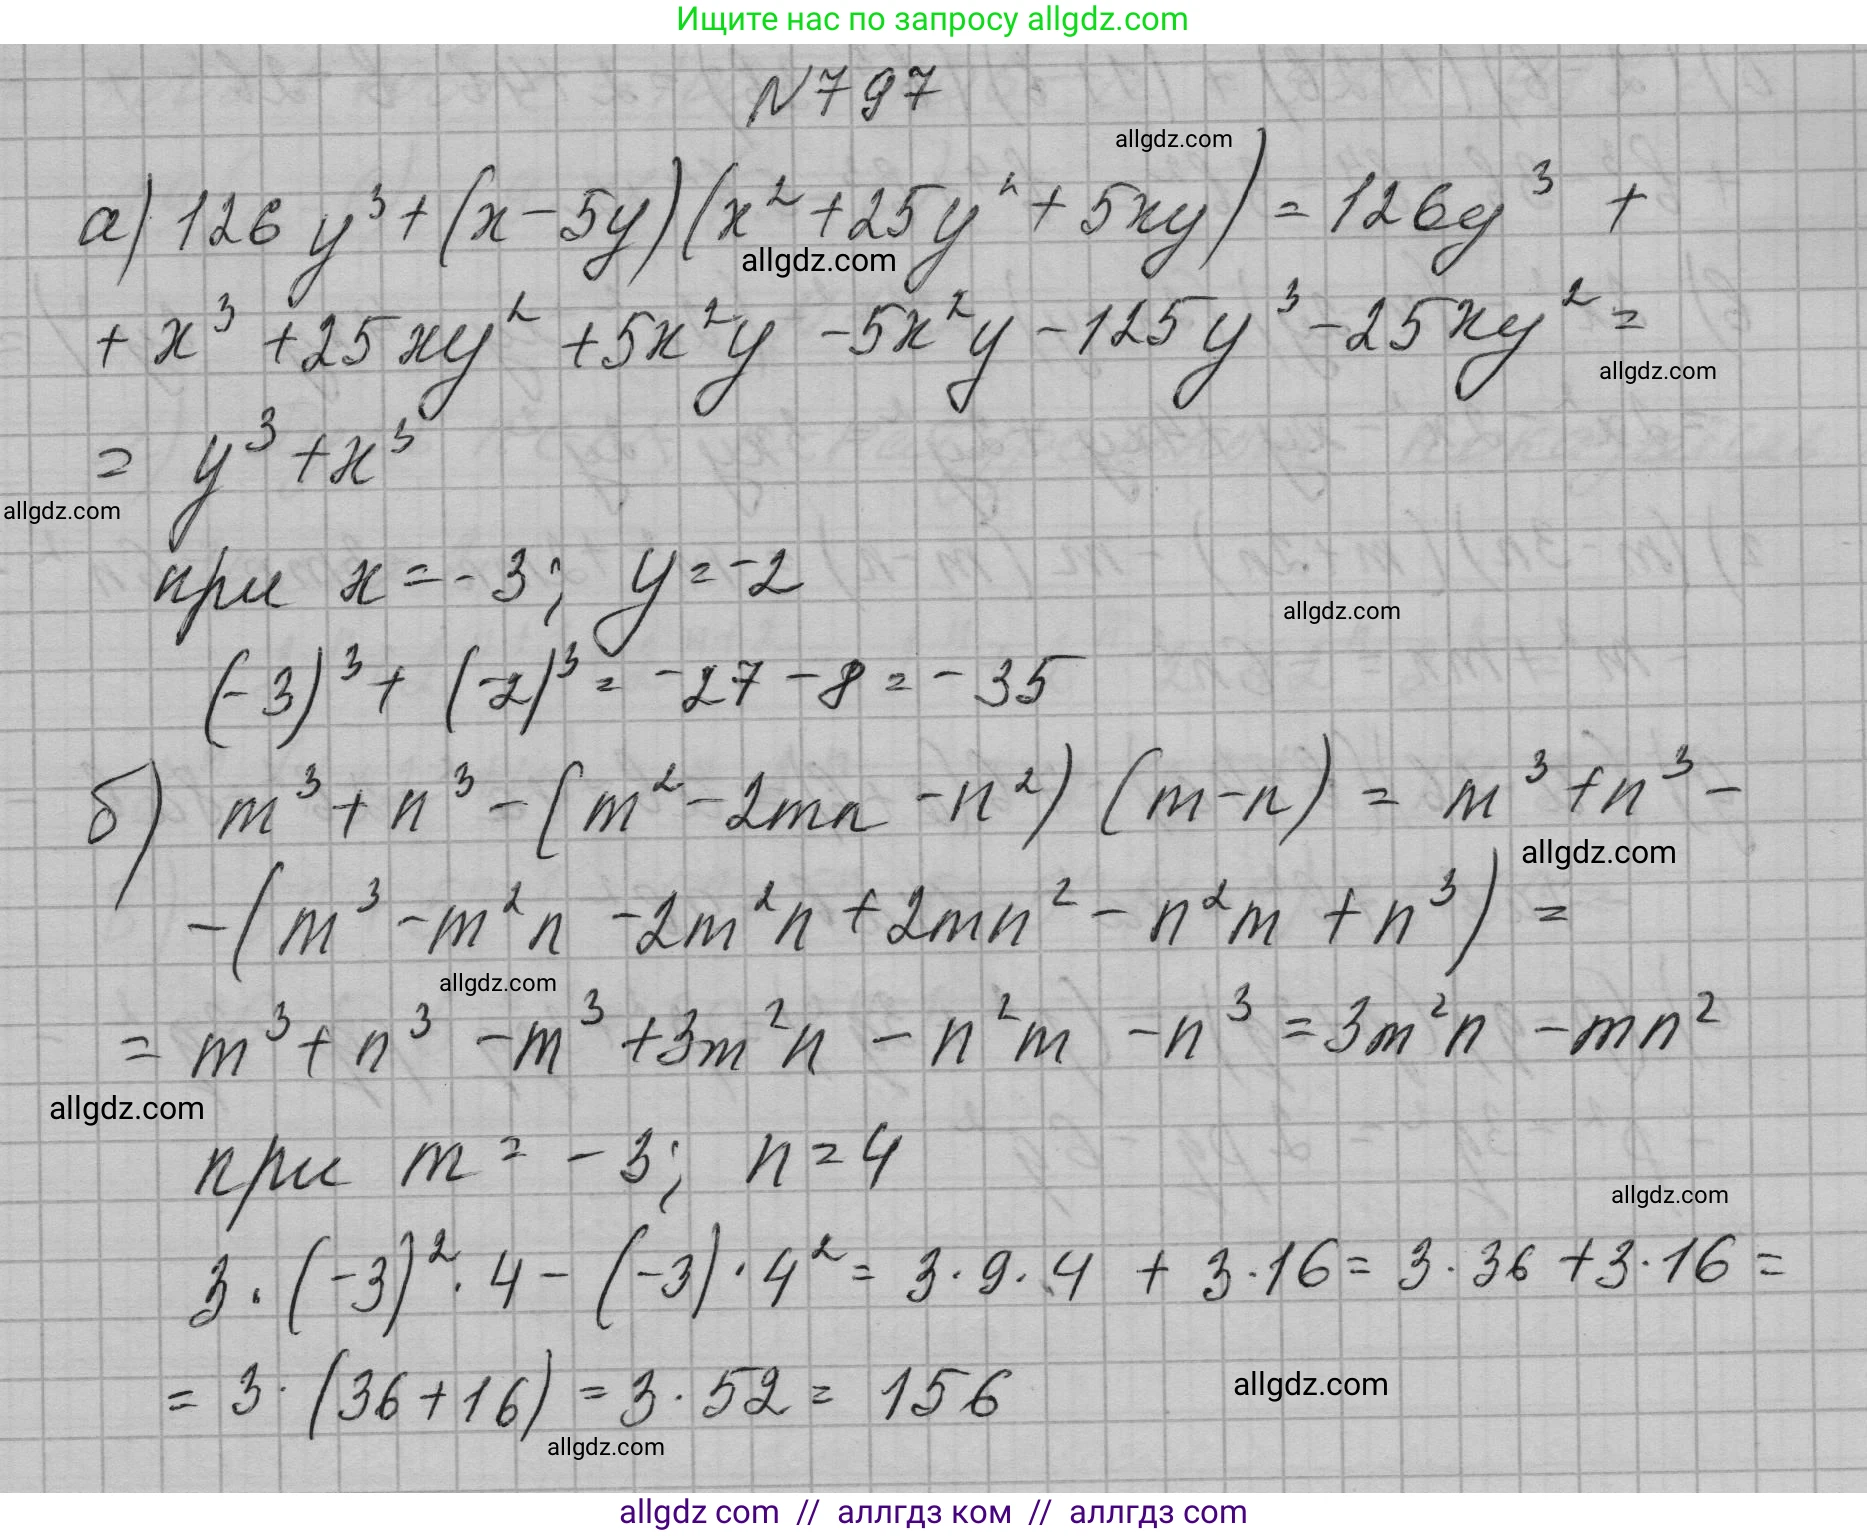 Ищите нас по запросу allgdz.com
N797
allgdz.com
а) 126y³ + (x - 5y)(x² + 25y² + 5xy) = 126y³ +
allgdz.com
+ x³ + 25xy² + 5x²y - 5x²y - 125y³ - 25xy² =
allgdz.com
= y³ + x³
allgdz.com
при x = -3; y = -2
allgdz.com
(-3)³ + (-2)³ = -27 - 8 = -35
б) m³ + n³ - (m² - 2mn - n²)(m - n) = m³ + n³ -
allgdz.com
- (m³ - m²n - 2m²n + 2mn² - n²m + n³) =
allgdz.com
= m³ + n³ - m³ + 3m²n - n²m - n³ = 3m²n - mn²
allgdz.com
при m = -3; n = 4
allgdz.com
3·(-3)²·4 - (-3)·4² = 3·9·4 + 3·16 = 3·36 + 3·16 =
= 3·(36 + 16) = 3·52 = 156
allgdz.com
allgdz.com
allgdz com // аллгдз ком // аллгдз com